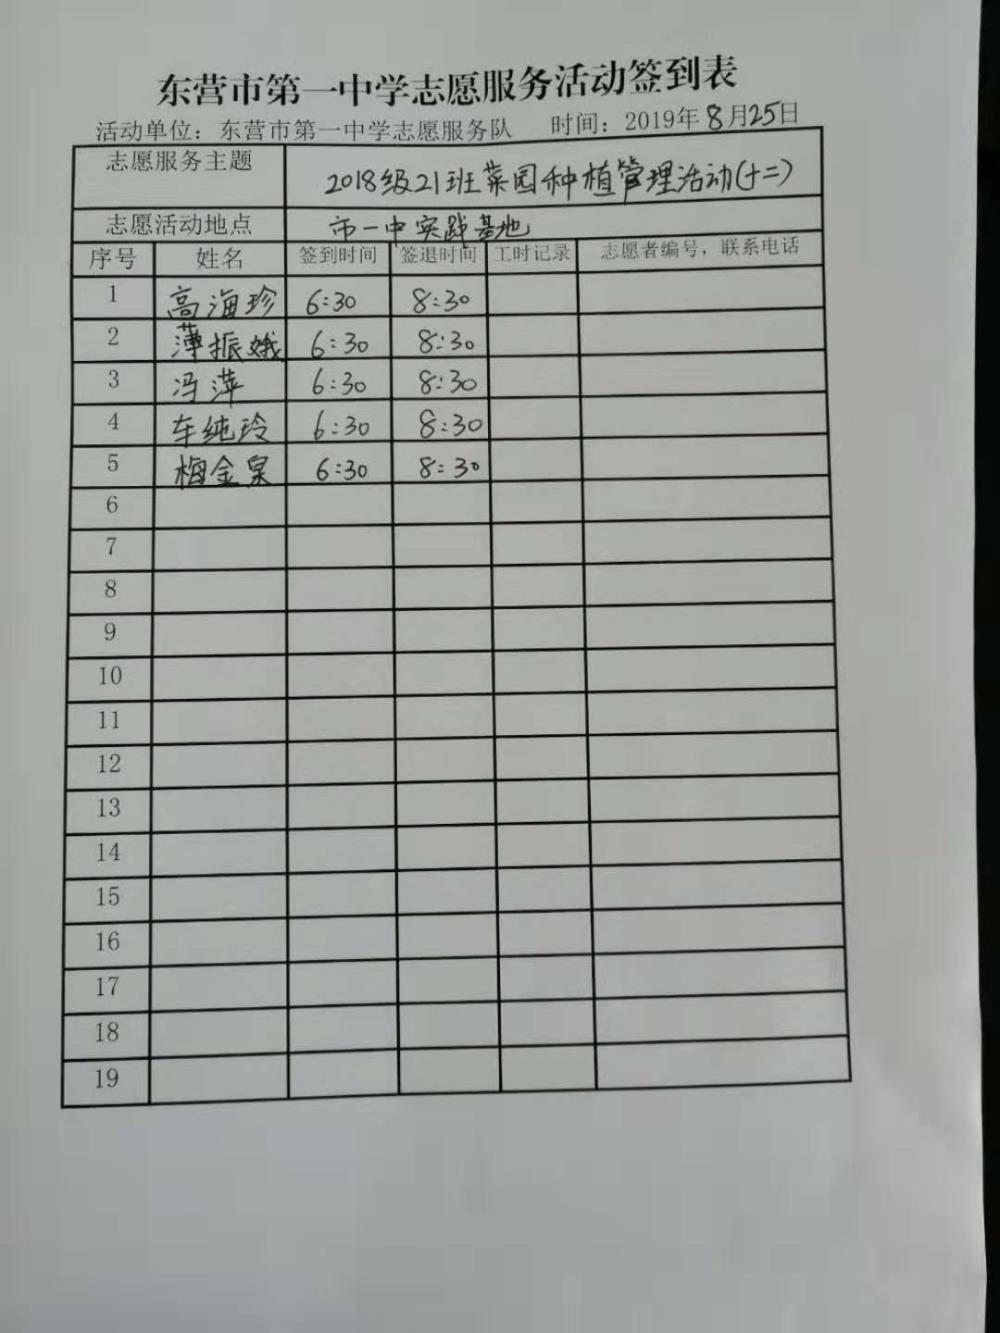 东营市第一中学志愿服务活动签到表
活动单位：东营市第一中学志愿服务队 时间：2019年8月25日
志愿服务主题 2018级21班菜园种植管理活动(十二)
志愿活动地点 市一中实践基地
序号 姓名 签到时间 签退时间 工时记录 志愿者编号，联系电话
1 高海珍 6:30 8:30
2 薄振娥 6:30 8:30
3 冯萍 6:30 8:30
4 车纯玲 6:30 8:30
5 梅金泉 6:30 8:30
6
7
8
9
10
11
12
13
14
15
16
17
18
19